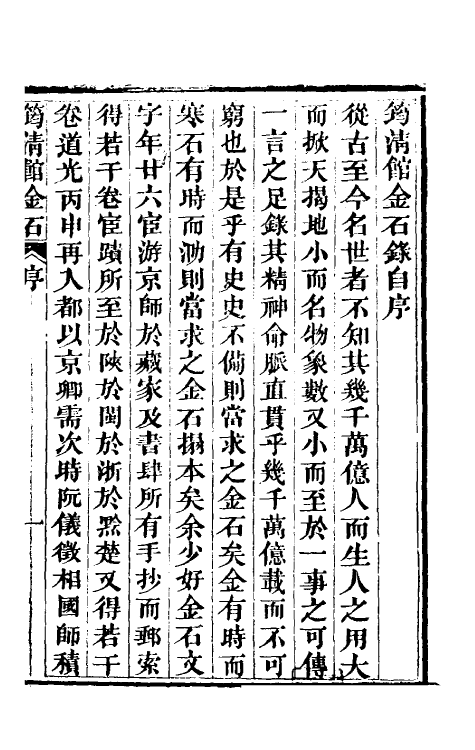 筠清館金石錄自序
從古至今名世者不知其幾千萬億人而生人之用大
而掀天揭地小而名物象數又小而至於一事之可傳
一言之足錄其精神命脈直貫乎幾千萬億載而不可
窮也於是乎有史史不備則當求之金石矣金有時而
寒石有時而泐則當求之金石搨本矣余少好金石文
字年廿六宦游京師於藏家及書肆所有手抄而郵索
得若干卷宦蹟所至於陜於閩於浙於黔楚又得若干
卷道光丙申再入都以京卿需次時阮儀徵相國師積
筠清館金石 序 一